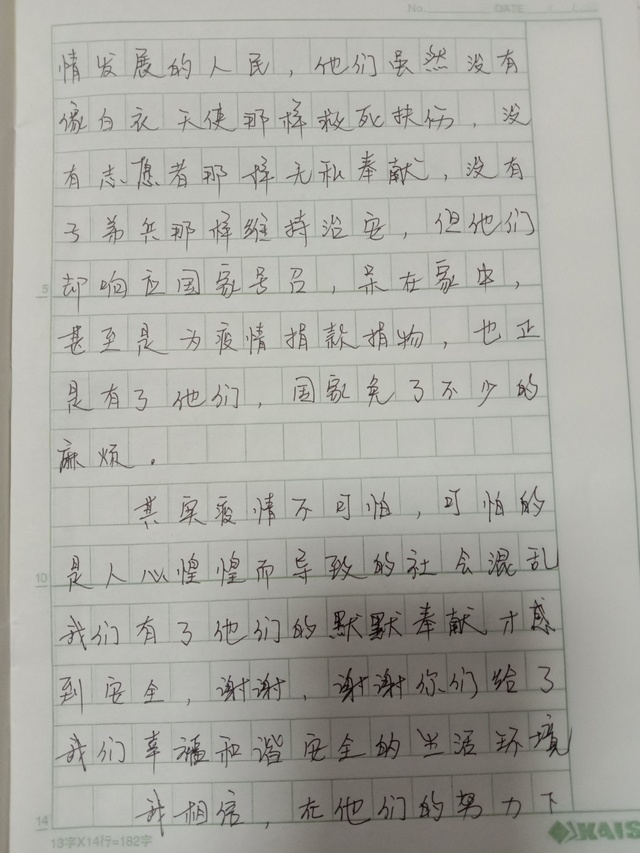 No. DATE
情发展的人民，他们虽然没有
像白衣天使那样救死扶伤，没
有志愿者那样无私奉献，没有
子弟兵那样维持治安，但他们
5
却响应国家号召，呆在家中，
甚至是为疫情捐款捐物，也正
是有了他们，国家免了不少的
麻烦。
其实疫情不可怕，可怕的
10
是人心惶惶而导致的社会混乱
我们有了他们的默默奉献才感
到安全，谢谢，谢谢你们给了
我们幸福和谐安全的生活环境
14
我相信，在他们的努力下
13字X14行=182字
KAIS